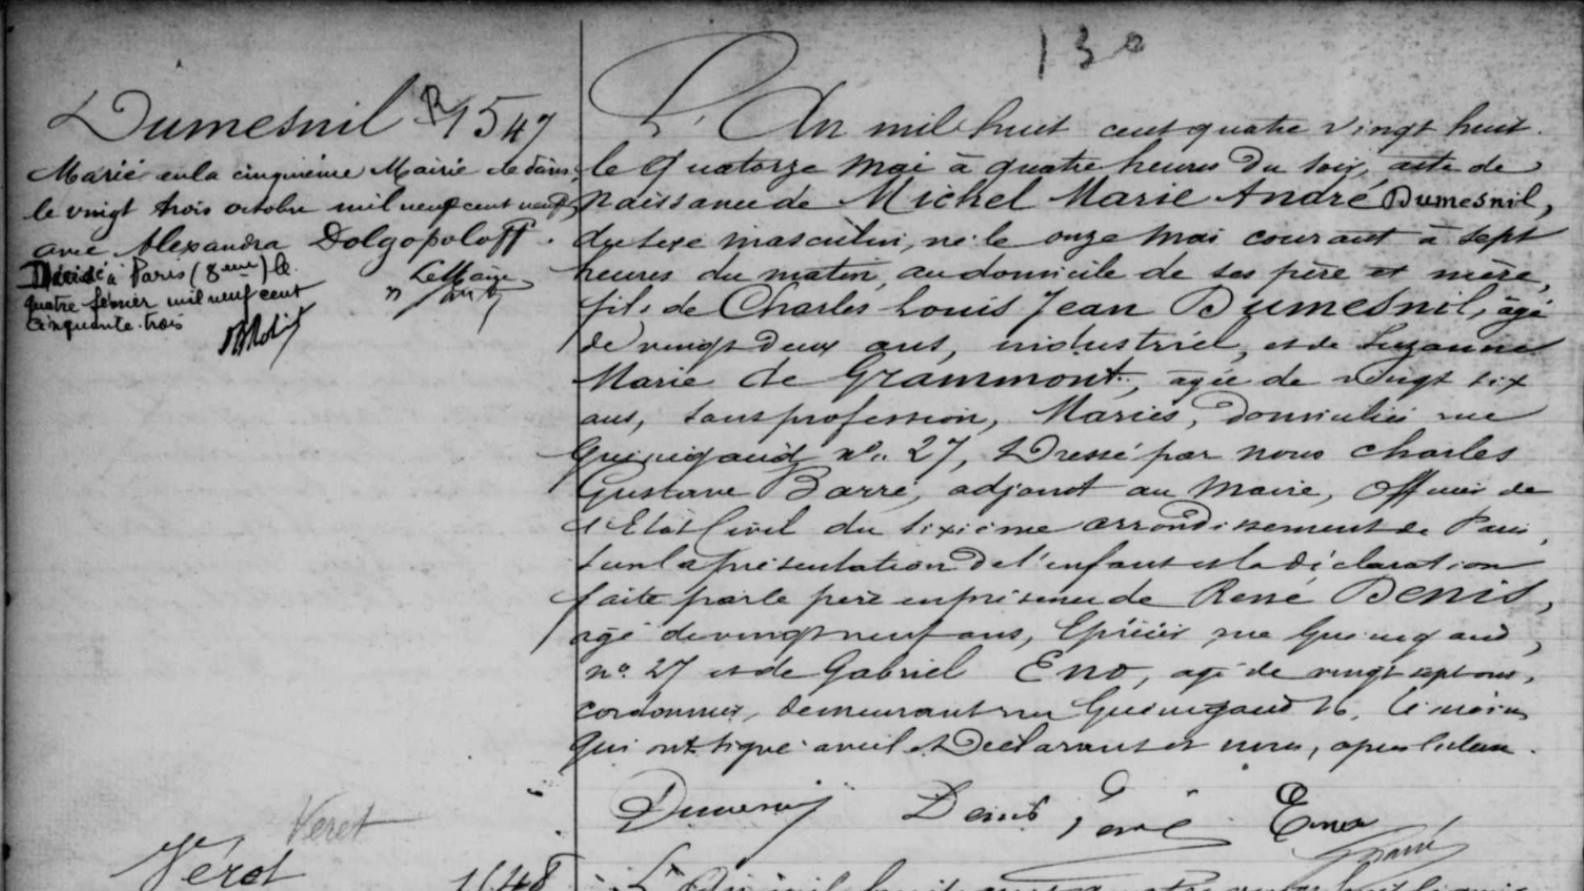 130
Dumesnil
1547
Marié en la cinquième Mairie de Paris,
le vingt trois octobre mil neuf cent neuf,
avec Alexandra Dolgopoloff.
Le Maire
Décédé à Paris (8eme) le
quatre février mil neuf cent
cinquante-trois
L'An mil huit cent quatre vingt huit.
le Quatorze mai à quatre heures du soir, acte de
Naissance de Michel Marie André Dumesnil,
du sexe masculin, né le onze mai courant à sept
heures du matin, au domicile de ses père et mère,
fils de Charles Louis Jean Dumesnil, âgé
de vingt deux ans, industriel, et de Suzanne
Marie de Grammont, agée de vingt six
ans, sans profession, Mariés, domiciliés rue
Guénégaud no. 27, Dressé par nous Charles
Gustave Barré, adjoint au Maire, Officier de
l'Etat Civil du sixième arrondissement de Paris,
sur la présentation de l'enfant et la déclaration
faite par le père en présence de René Denis,
agé de vingt neuf ans, Epicier rue Guénégaud,
no. 27 et de Gabriel Eno, agé de vingt sept ans,
cordonnier, demeurant rue Guénégaud 16, témoins
qui ont signé avec le Déclarant et nous, après lecture.
Dumesnil Denis René Eno
Barré
Véret
Véret
1548